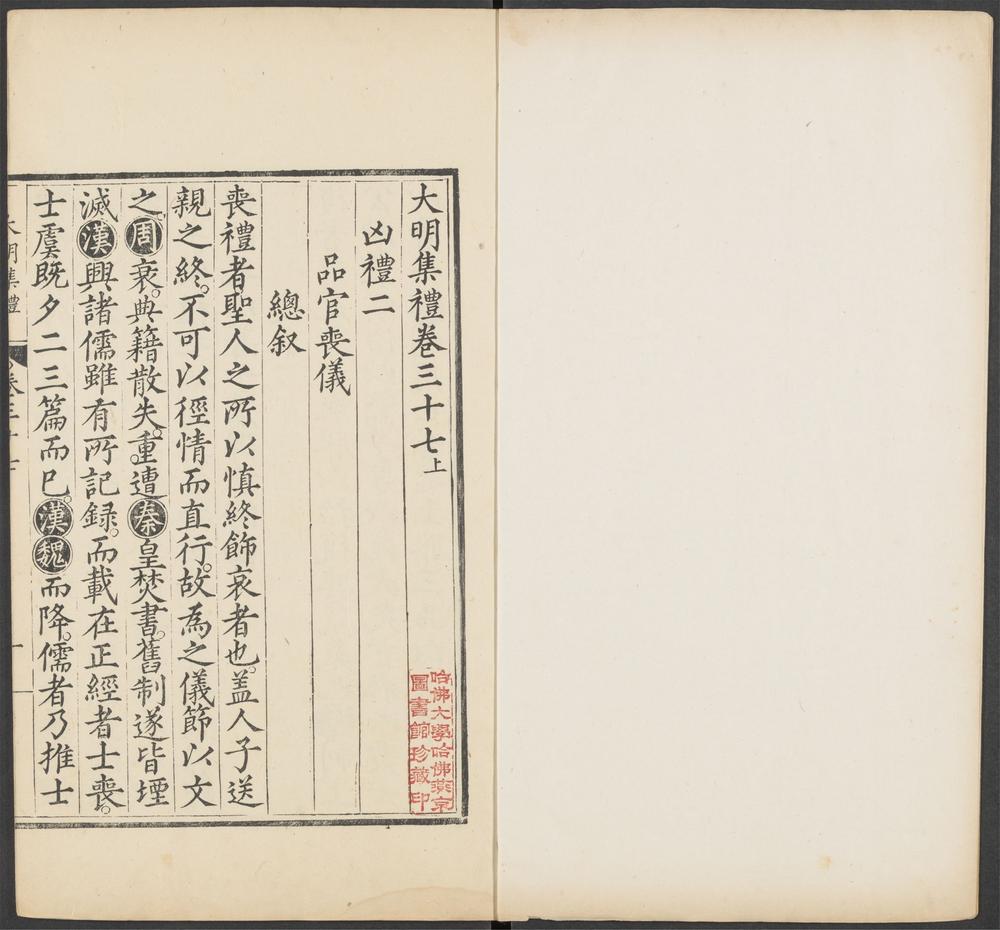 大明集禮卷三十七上
凶禮二
品官喪儀
總叙
喪禮者聖人之所以慎終飾哀者也。盖人子送
親之終。不可以徑情而直行。故為之儀節以文
之。周衰。典籍散失。重遭秦皇焚書。舊制遂皆堙
滅。漢興諸儒雖有所記録。而載在正經者士喪。
士虞既夕二三篇而已。漢魏而降。儒者乃推士
大明集禮
卷三十七
一
哈佛大學哈佛燕京
圖書館珍藏印